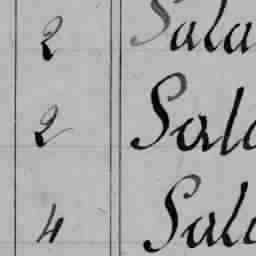 2 Sala
2 Sala
4 Sala